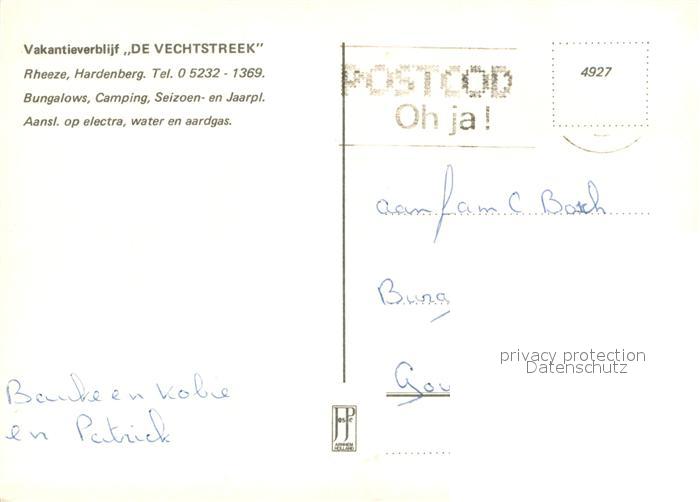 Vakantieverblijf „DE VECHTSTREEK"
Rheeze, Hardenberg. Tel. 0 5232 - 1369.
Bungalows, Camping, Seizoen- en Jaarpl.
Aansl. op electra, water en aardgas.
POSTCOD
Oh ja!
4927
aan fam C Bosch
Burg
Gou
privacy protection
Datenschutz
Bauke en Kobie
en Patrick
JosPé
ARNHEM
HOLLAND